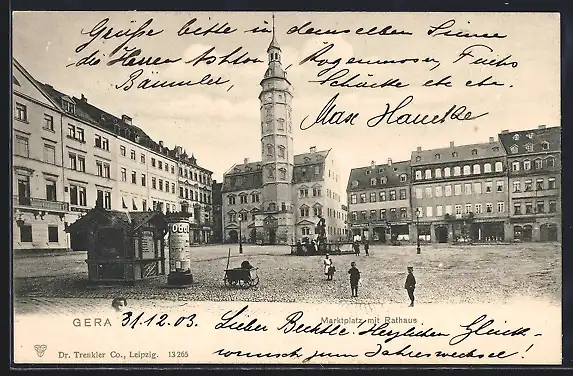 Grüße bitte in demselben Sinne
die Herren Asthon, Rogenmoser, Fuchs
Bäumler, Schücke etc etc.
Max Hauelke
OEG
GERA Marktplatz mit Rathaus
31.12.03. Lieber Bechtle! Herzlichen Glück-
wunsch zum Jahreswechsel!
Dr. Trenkler Co., Leipzig. 13 265